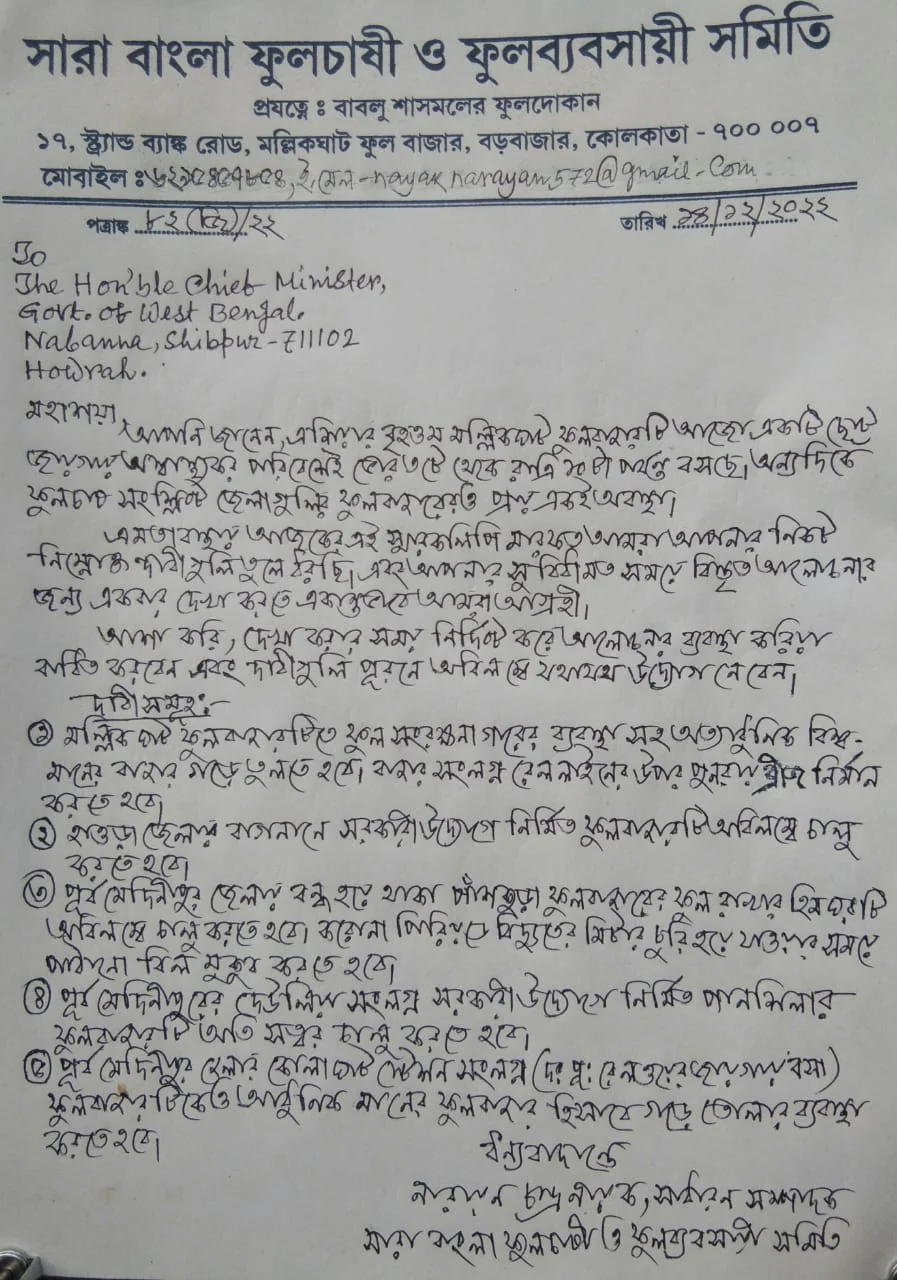 সারা বাংলা ফুলচাষী ও ফুলব্যবসায়ী সমিতি
প্রযত্নে : বাবলু শাসমলের ফুলদোকান
১৭, স্ট্র্যান্ড ব্যাঙ্ক রোড, মল্লিকঘাট ফুল বাজার, বড়বাজার, কোলকাতা - ৭০০ ০০৭
মোবাইল : ই, মেল - nayak narayan572@gmail.com
পত্রাঙ্ক /২২ তারিখ ১৪/১২/২০২২
To
The Hon'ble Chief Minister,
Govt. of West Bengal.
Nabanna, Shibpur - 711102
Howrah.
মহাশয়া,
আপনি জানেন, এশিয়ার বৃহত্তম মল্লিকঘাট ফুলবাজারটি আজো একটি ছোট
জায়গায় অস্বাস্থ্যকর পরিবেশেই ভোর ৩টে থেকে রাত্রি ১০টা পর্যন্ত বসছে। অন্যদিকে
ফুলচাষ সংশ্লিষ্ট জেলাগুলির ফুলবাজারেরও প্রায় একই অবস্থা।
এমতাবস্থায় আজকের এই স্মারকলিপি মারফত আমরা আপনার নিকট
নিম্নোক্ত দাবীগুলি তুলে ধরছি এবং আপনার সুবিধামত সময়ে বিস্তৃত আলোচনার
জন্য একবার দেখা করতে একান্তভাবে আমরা আগ্রহী।
আশা করি, দেখা করার সময় নির্দিষ্ট করে আলোচনার ব্যবস্থা করিয়া
বাধিত করবেন এবং দাবীগুলি পূরনে অবিলম্বে যথাযথ উদ্যোগ নেবেন।
দাবীসমূহ :-
১) মল্লিকঘাট ফুলবাজারটিতে ফুল সংরক্ষনাগারের ব্যবস্থা সহ অত্যাধুনিক বিশ্ব-
মানের বাজার গড়ে তুলতে হবে। বাজার সংলগ্ন রেল লাইনের উপর পুনরায় ব্রীজ নির্মান
করতে হবে।
২) হাওড়া জেলার বাগনানে সরকারী উদ্যোগে নির্মিত ফুলবাজারটি অবিলম্বে চালু
করতে হবে।
৩) পূর্ব মেদিনীপুর জেলায় বন্ধ হয়ে থাকা পাঁশকুড়া ফুলবাজারের ফুল রাখার হিমঘরটি
অবিলম্বে চালু করতে হবে। করোনা পিরিয়ডে বিদ্যুতের মিটার চুরি হয়ে যাওয়ার সময়ে
পাঠানো বিল মুকুব করতে হবে।
৪) পূর্ব মেদিনীপুরের দেউলিয়া সংলগ্ন সরকারী উদ্যোগে নির্মিত পানশিলার
ফুলবাজারটি অতি সত্বর চালু করতে হবে।
৫) পূর্ব মেদিনীপুর জেলার কোলাঘাট স্টেশন সংলগ্ন (দঃ পূঃ রেলওয়ের জায়গায় বসা)
ফুলবাজারটিকেও আধুনিক মানের ফুলবাজার হিসাবে গড়ে তোলার ব্যবস্থা
করতে হবে।
ধন্যবাদান্তে
নারায়ন চন্দ্র নায়ক, সাধারন সম্পাদক
সারা বাংলা ফুলচাষী ও ফুলব্যবসায়ী সমিতি